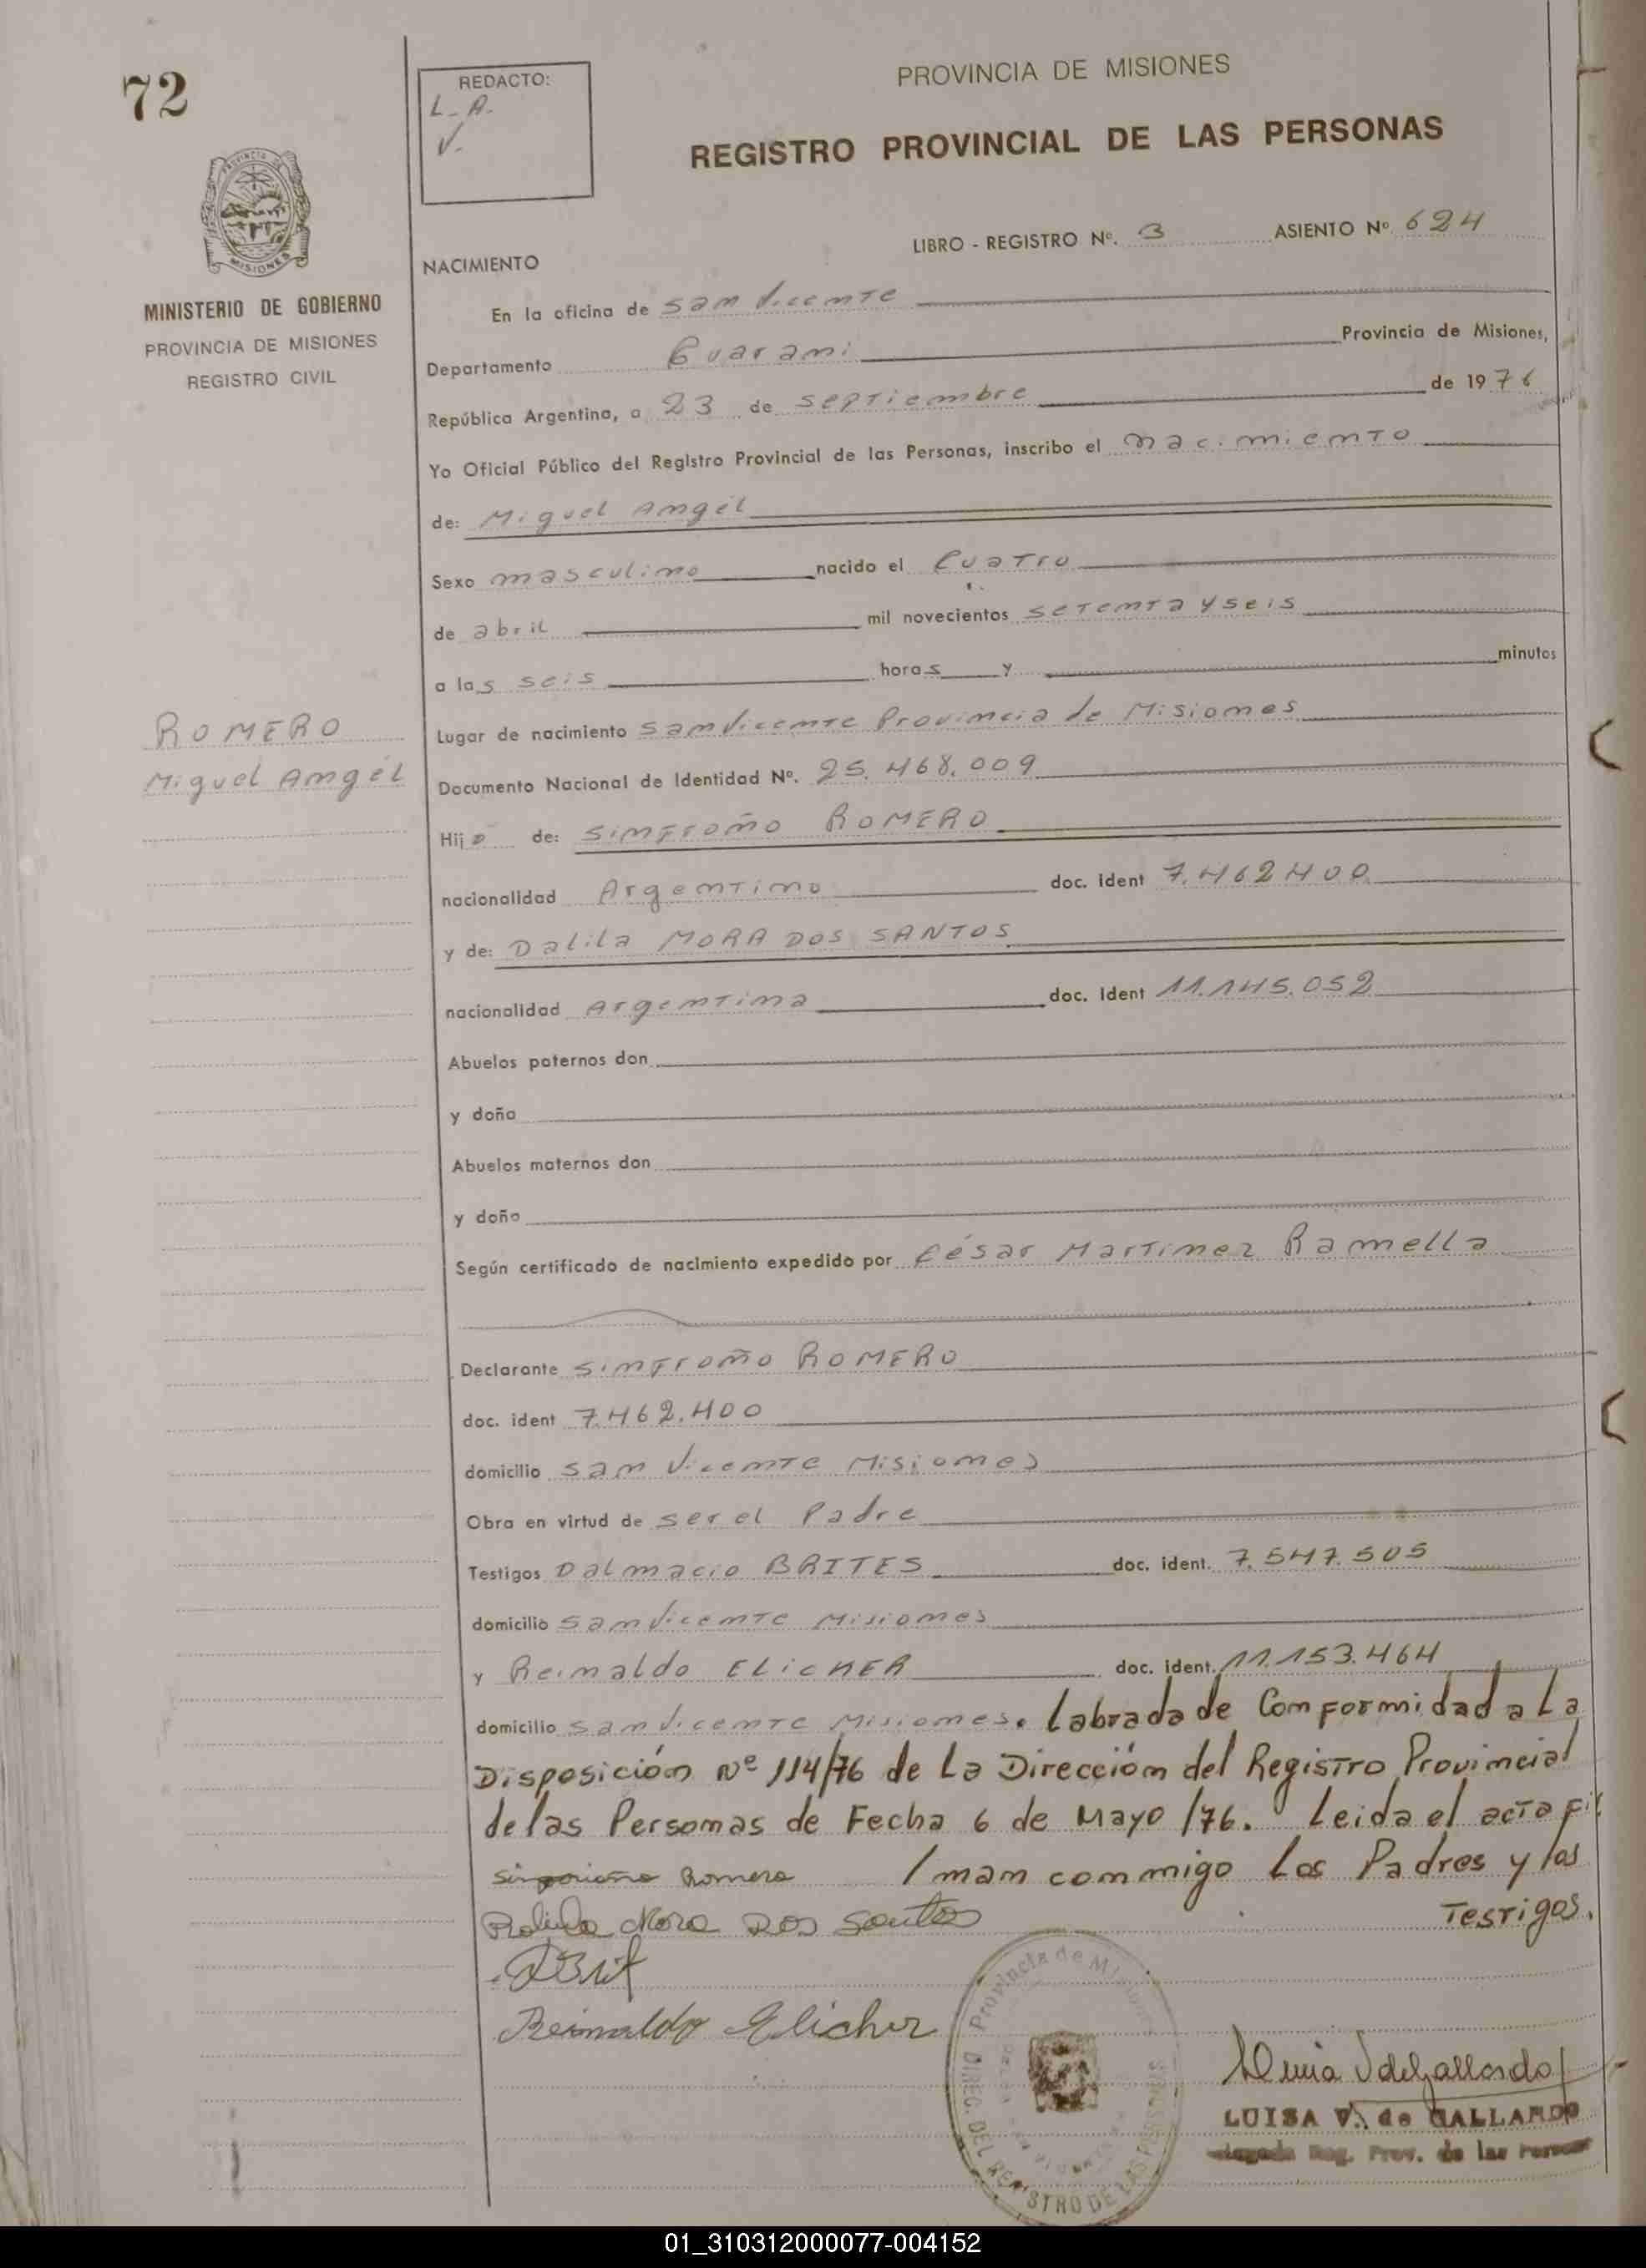 72
REDACTO:
L-A.
V.
PROVINCIA DE MISIONES
REGISTRO PROVINCIAL DE LAS PERSONAS
MINISTERIO DE GOBIERNO
PROVINCIA DE MISIONES
REGISTRO CIVIL
LIBRO - REGISTRO Nº. 3 ASIENTO Nº 624
NACIMIENTO
En la oficina de San Vicente
Departamento Guarani Provincia de Misiones,
República Argentina, a 23 de septiembre de 1976
Yo Oficial Público del Registro Provincial de las Personas, inscribo el nacimiento
de: Miguel Angel
Sexo masculino nacido el Cuatro
de abril mil novecientos setenta y seis
a las seis horas y minutos
ROMERO
Miguel Angel
Lugar de nacimiento San Vicente Provincia de Misiones
Documento Nacional de Identidad Nº. 25.468.009
Hijo de: SINFROÑO ROMERO
nacionalidad Argentino doc. ident 7.462400
y de: Dalila MORA DOS SANTOS
nacionalidad Argentina doc. Ident 11.145.052
Abuelos paternos don
y doña
Abuelos maternos don
y doña
Según certificado de nacimiento expedido por César Martinez Ramella
Declarante SINFROÑO ROMERO
doc. ident 7.462.400
domicilio San Vicente Misiones
Obra en virtud de ser el Padre
Testigos Dalmacio BRITES doc. ident. 7.547.505
domicilio San Vicente Misiones
y Reinaldo ELICKER doc. ident. 11.153.464
domicilio San Vicente Misiones. Labrada de Conformidad a La
Disposición Nº 114/76 de La Dirección del Registro Provincial
de las Personas de Fecha 6 de Mayo /76. Leida el acta fir
Romero /man conmigo Los Padres y los
Testigos.
Mora Dos Santos
Reinaldo Elicher
Provincia de Misiones
DIREC. DEL REGISTRO DE LAS PERSONAS
LUISA V. de GALLARDO
Reg. Prov. de las Personas
01_310312000077-004152